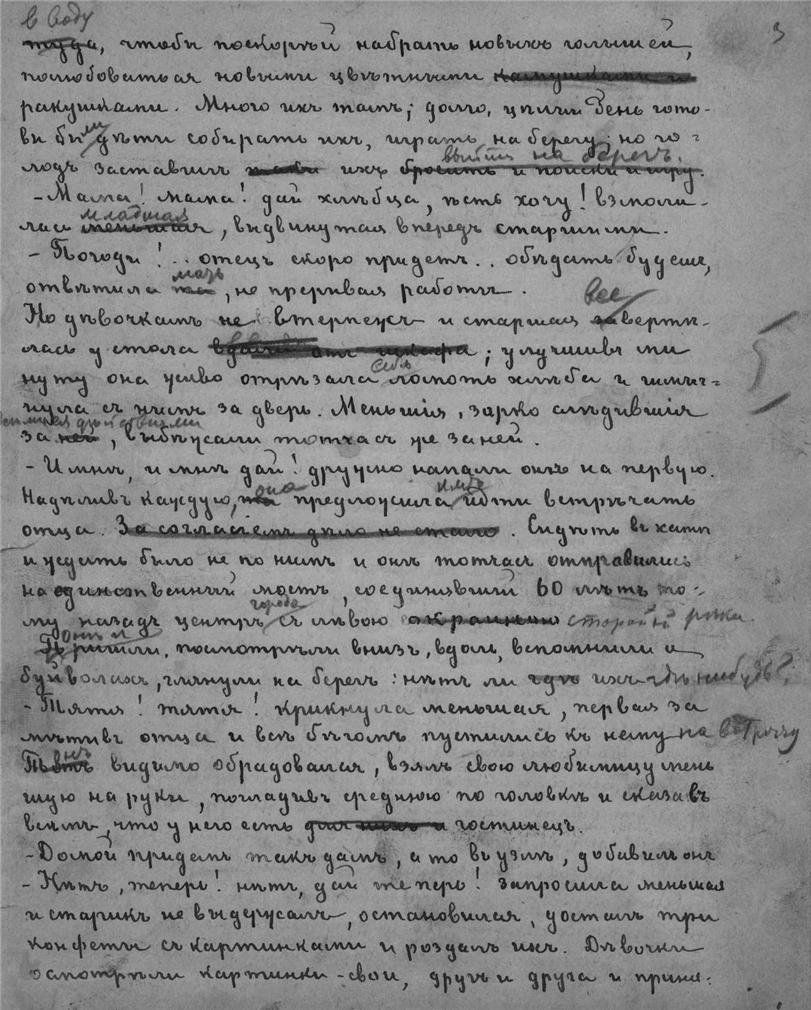 в воду
3
туда, чтобы поскорѣй набрать новыхъ голышей,
полюбоваться новыми цвѣтными камушками и
ракушками. Много ихъ тамъ; долго, цѣлый день гото-
вы были дѣти собирать ихъ, играть на берегу; но го-
выйти на берегъ.
лодъ заставилъ ихъ бросить и поиски и игру.
- Мама! мама! дай хлѣбца, ѣсть хочу! взмоли-
младшая
лась меньшая, выдвинутая впередъ старшими.
- Погоди!.. отецъ скоро придетъ.. обѣдать будемъ,
мать
отвѣтила та, не прерывая работы.
все
Но дѣвочкамъ не втерпежъ и старшая завертѣ-
лась у стола ; улучивъ ми
себѣ
нуту она живо отрѣзала ломоть хлѣба и шмыг-
нула съ нимъ за дверь. Меньшія, зорко слѣдившія
за ней, выбѣжали тотчасъ же за ней.
- И мнѣ, и мнѣ дай! дружно напали онѣ на первую.
она имъ
Надѣливъ каждую, та предложила идти встрѣчать
отца. За согласіемъ дѣло не стало. Сидѣть въ хатѣ
и ждать было не по нимъ и онѣ тотчасъ отправились
на единственный мостъ, соединявшій 60 лѣтъ то-
города
му назадъ центръ съ лѣвою окраиною стороной рѣки.
онѣ и
Пришли, посмотрѣли внизъ, вдоль, вспомнили о
буйволахъ, глянули на берегъ: нѣтъ ли гдѣ ихъ гдѣ нибудь?
- Тятя! тятя! крикнула меньшая, первая за
мѣтивъ отца и всѣ бѣгомъ пустились къ нему на встрѣчу
Тотъ видимо обрадовался, взялъ свою любимицу мень
шую на руки, погладивъ среднюю по головкѣ и сказавъ
всѣмъ, что у него есть для нихъ и гостинецъ.
- Домой придемъ такъ дамъ, а то въ узлѣ, добавилъ онъ
- Нѣтъ, теперь! нѣтъ, дай теперь! запросила меньшая
и старикъ не выдержалъ, остановился, досталъ три
конфеты съ картинками и роздалъ ихъ. Дѣвочки
осмотрѣли картинки - свои, другъ и друга и приня-